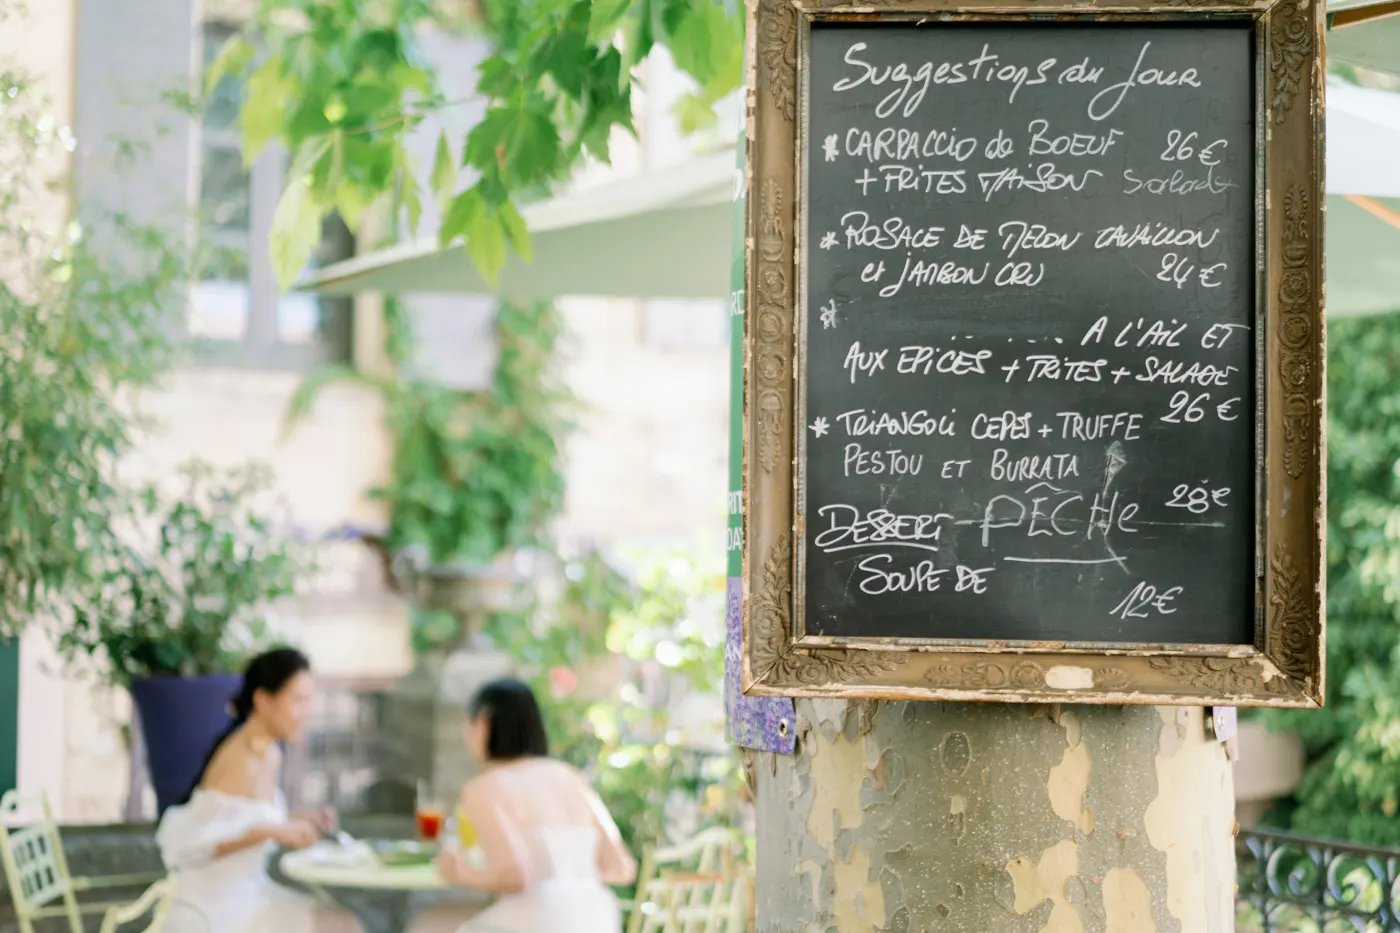 Suggestions du Jour
* CARPACCIO de BOEUF 26€
+ FRITES MAISON Salade
* ROSACE DE MELON CAVAILLON
et JAMBON CRU 24€
*
A L'AIL ET
AUX EPICES + FRITES + SALADE
26€
* TRIANGOLI CEPES + TRUFFE
PESTOU ET BURRATA
28€
DESSERT PÊCHE
SOUPE DE
12€